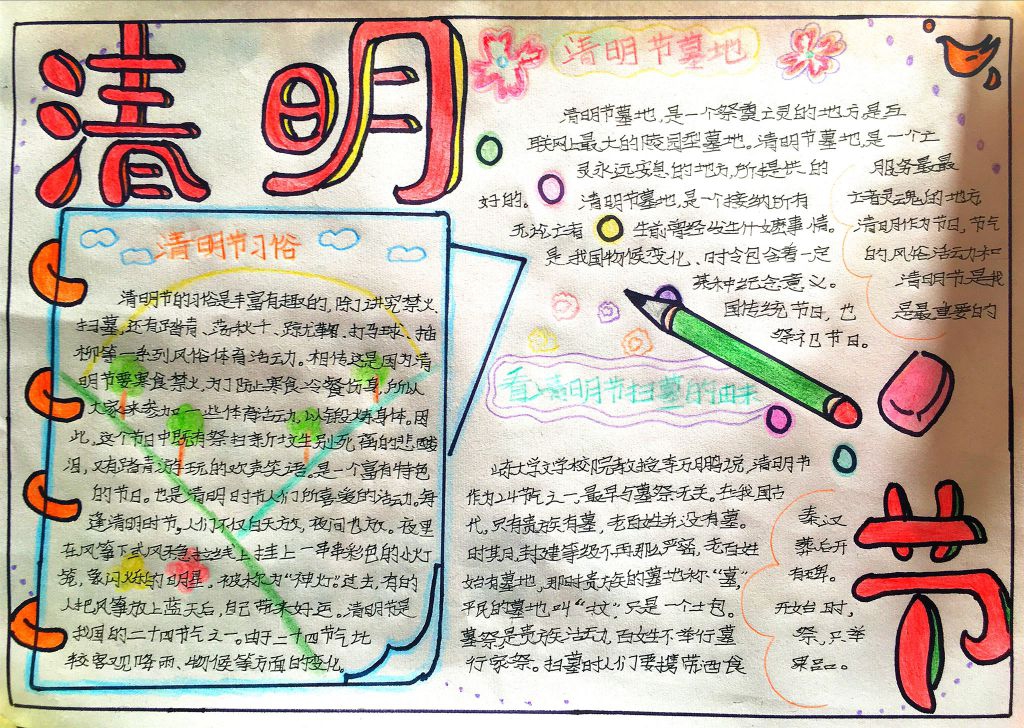 清明
节
清明节习俗
清明节的习俗是丰富有趣的,除了讲究禁火、
扫墓,还有踏青、荡秋千、蹴鞠、打马球、插
柳等一系列风俗体育活动。相传这是因为清
明节要寒食禁火,为了防止寒食冷餐伤身,所以
大家来参加一些体育活动,以锻炼身体。因
此,这个节日中既有祭扫新坟生别死离的悲酸
泪,又有踏青游玩的欢笑笑语。是一个富有特色
的节日。也是清明时节人们所喜爱的活动。每
逢清明时节。人们不仅白天放,夜间也放。夜里
在风筝下或风稳拉线上挂上一串串彩色的小灯
笼,象闪烁的明星。被称为“神灯”过去,有的
人把风筝放上蓝天后,自己带来好运。清明节是
我国的二十四节气之一。由于二十四节气比
较客观降雨、物候等方面的变化。
清明节墓地
清明节墓地,是一个祭奠亡灵的地方是互
联网上最大的陵园型墓地。清明节墓地,是一个亡
灵永远安息的地方,所提供的 服务最最
好的。 清明节墓地,是一个接纳所有 亡者灵魂的地方
无论亡者 生前曾经发生什么事情。 清明作为节日,节气
是我国物候变化、时令包含着一定 的风俗活动和
某种纪念意义。 清明节是我
国传统节日,也 是最重要的
祭祀节日。
看清明节扫墓的由来
大学文学校院教授李万鹏说,清明节
作为24节气之一,最早与墓祭无关。在我国古
代,只有贵族有墓,老百姓并没有墓。 秦汉
时某日,封建等级不再那么严密,老百姓 葬后开
始有墓地,那时贵族的墓地称“墓”, 有碑。
平民的墓地,叫“坟”只是一个土包。 开始时,
墓祭是贵族活动,百姓不举行墓 祭,只举
行家祭。扫墓时人们要携带酒食